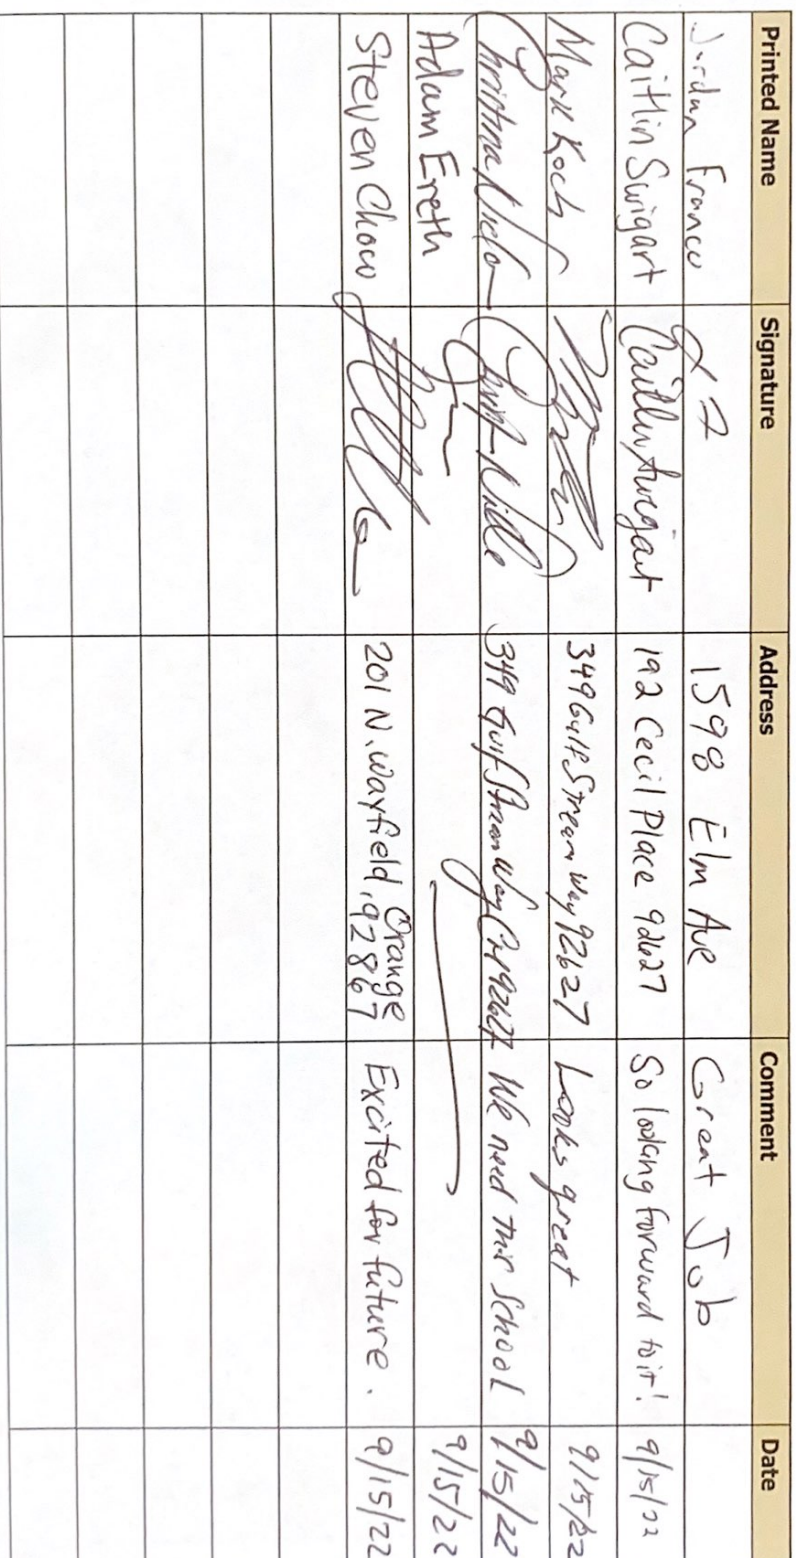 Printed Name Signature Address Comment Date
Jordan Franco 1598 Elm Ave Great Job
Caitlin Swigart Caitlin Swigart 192 Cecil Place 92627 So looking forward to it! 9/15/22
Mark Koch 349 Gulf Stream Way 92627 Looks great 9/15/22
Christina 349 Gulf Stream Way 92627 We need this school 9/15/22
Adam Ereth 9/15/22
Steven Chow 201 N. Wayfield, Orange 9/15/22
92867 Excited for future.